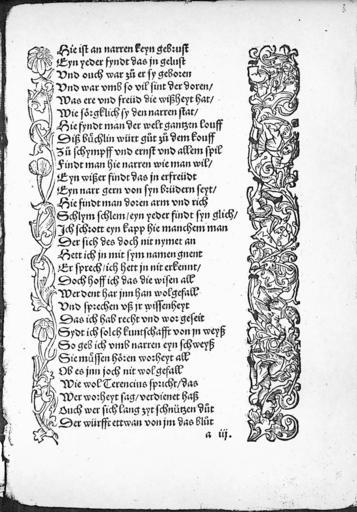 Hie ist an narren keyn gebrust
Eyn yeder fyndt das jn gelust
Vnd ouch war zů er sy geboren
Vnd war vmb so vil sint der doren/
Was ere vnd freüd die wißheyt hat/
Wie sörgklich sy den narren stat/
Hie fyndt man der welt gantzen louff
Diß bůchlin würt gůt zů dem kouff
Zů schympff vnd ernst vnd allem spil
Findt man hie narren wie man wil/
Eyn wißer findt das jn erfreüdt
Eyn narr gern von syn brüdern seyt/
Hie findt man doren arm vnd rich
Schlym schlem/eyn yeder findt syn glich/
Jch schrott eyn kapp hie manchem man
Der sich des doch nit nymet an
Hett ich jn mit sym namen gnent
Er sprech/ich hett jn nit erkennt/
Doch hoff ich das die wisen all
Werdent har jnn han wolgefall
Vnd sprechen vß jr wissenheyt
Das ich hab recht vnd wor geseit
Sydt ich solch kuntschafft von jn weyß
So geb ich vmb narren eyn schweyß
Sie müssen hören worheyt all
Ob es jnn joch nit wolgefall
Wie wol Terencius spricht/das
Wer worheyt sag/verdienet haß
Ouch wer sich lang zyt schnützen důt
Der würfft ettwan von jm das blůt
a iij.